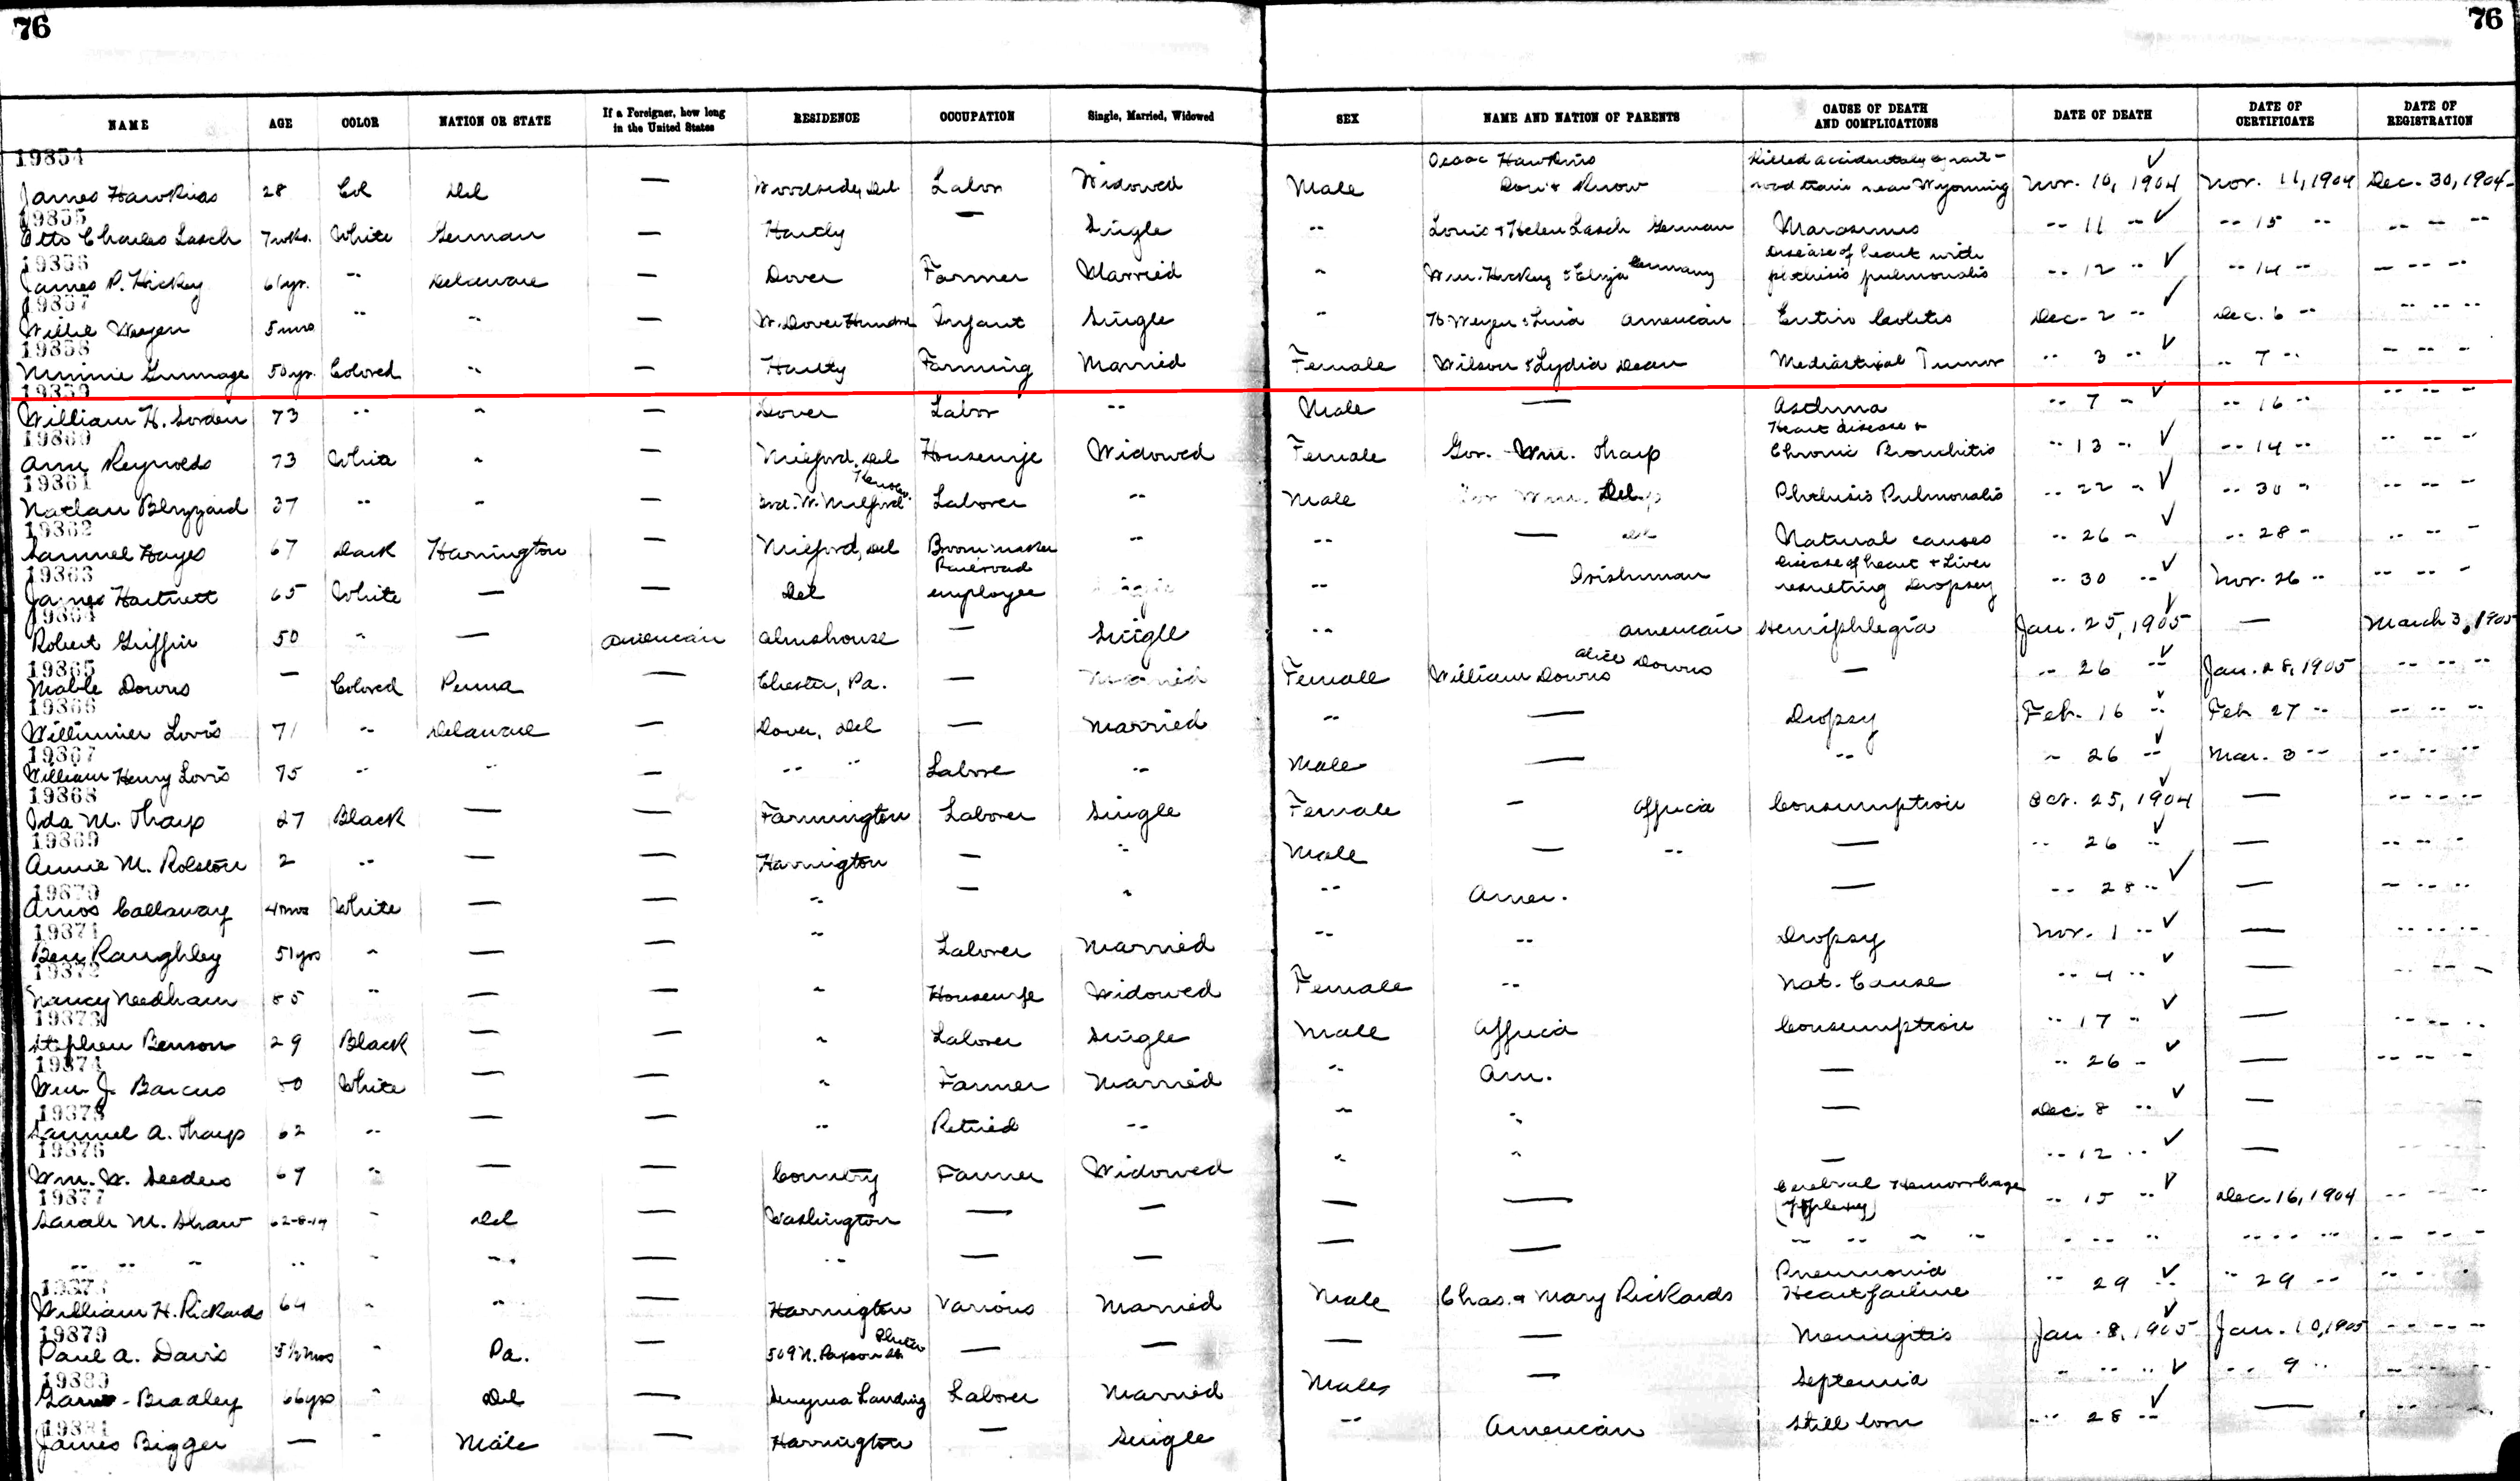 76 76
NAME AGE COLOR NATION OR STATE If a Foreigner, how long in the United States RESIDENCE OCCUPATION Single, Married, Widowed SEX NAME AND NATION OF PARENTS CAUSE OF DEATH AND COMPLICATIONS DATE OF DEATH DATE OF CERTIFICATE DATE OF REGISTRATION
19854 Isaac Hawkins Killed accidentaly by rail-
James Hawkins 28 Col Del — Woodside, Del Labor Widowed Male Don't Know road train near Wyoming Nov. 10, 1904 ✓ Nov. 11, 1904 Dec. 30, 1904
19855
Otto Charles Lasch 7 wks. White German — Hartly — Single " Louis & Helen Lasch German Marasmus " 11 " ✓ " 15 " " " "
19856 Disease of heart with
James P. Hickey 61 yr. " Delaware — Dover Farmer Married " Wm. Hickey & Eliza Germany phthisis pulmonalis " 12 " ✓ " 14 " " " "
19857
Willie Weyen 5 mos " " — W. Dover Hundred Infant Single " Weyen & American Entero Colitis Dec. 2 " ✓ Dec. 6 " " " "
19858
Minnie Gummage 50 yr. Colored " — Hartly Farming Married Female Wilson & Lydia Dean Mediastinal Tumor " 3 " ✓ " 7 " " " "
19859
William H. Sorden 73 " " — Dover Labor " Male — Asthma " 7 " ✓ " 16 " " " "
19860 Heart disease &
Ann Reynolds 73 White " — Milford, Del Housewife Widowed Female Gov. Wm. Tharp Chronic Bronchitis " 13 " ✓ " 14 " " " "
19861
Nathan Blizzard 37 " " — W. Milford Laborer " Male Del Phthisis Pulmonalis " 22 " ✓ " 30 " " " "
19862
Samuel Hayes 67 Dark Harrington — Milford, Del Broom maker " " — Natural causes " 26 " ✓ " 28 " " " "
19863 Railroad Disease of heart & Liver
James Hartnett 65 White — — Del employee " Irishman resulting Dropsey " 30 " ✓ Nov. 26 " " " "
19864
Robert Griffin 50 " — American Almshouse — Single " American Hemiphlegia Jan. 25, 1905 ✓ — March 3, 1905
19865 Alice Downs
Mable Downs — Colored Penna — Chester, Pa. — Married Female William Downs — " 26 " ✓ Jan. 28, 1905 " " "
19866
Willimier Lovis 71 " Delaware — Dover, Del — Married " — Dropsy Feb. 16 " ✓ Feb 27 " " " "
19867
William Henry Lovis 75 " " — " " Labore " Male — " " 26 " ✓ Mar. 3 " " " "
19868
Ida M. Tharp 27 Black — — Farmington Laborer Single Female — Affrica Consumption Oct. 25, 1904 ✓ — " " "
19869
Annie M. Rolston 2 " — — Harrington — " Male — " — " 26 " ✓ — " " "
19870
Amos Callaway 4 mos White — — " — " " Amer. — " 28 " ✓ — " " "
19871
Ben Raughley 51 yrs " — — " Laborer Married " " Dropsy Nov. 1 " ✓ — " " "
19872
Nancy Needham 85 " — — " Housewife Widowed Female " Nat. Cause " 4 " ✓ — " " "
19873
Stephen Benson 29 Black — — " Laborer Single Male Affrica Consumption " 17 " ✓ — " " "
19874
Wm J. Barcus 50 White — — " Farmer Married " Am. — " 26 " ✓ — " " "
19875
Samuel A. Tharp 62 " — — " Retired " " " — Dec. 8 " ✓ —
19876
Wm. W. Seeders 67 " — — Country Farmer Widowed " " — " 12 " ✓ —
19877 Cerebral Hemorrhage
Sarah M. Shaw 62-8-19 " Del — Washington — — — — (Apoplexy) " 15 " ✓ Dec. 16, 1904 " " "
" " " " " " — " " — — — — " " " " " " " " " " " " "
19878 Pneumonia
William H. Rickards 64 " " — Harrington Various Married Male Chas. & Mary Rickards Heart failure " 29 " ✓ " 29 " " " "
19879
Paul A. Davis 5½ mos " Pa. — 509 N. Paxson St. — — — — Meningitis Jan. 8, 1905 ✓ Jan. 10, 1905 " " "
19880
Bradley 66 yrs " Del — Smyrna Landing Laborer Married Male — Septemia " " " ✓ " 9 " " " "
19881
James Bigger — " Male — Harrington — Single " American Still born " 28 " ✓ — " " "